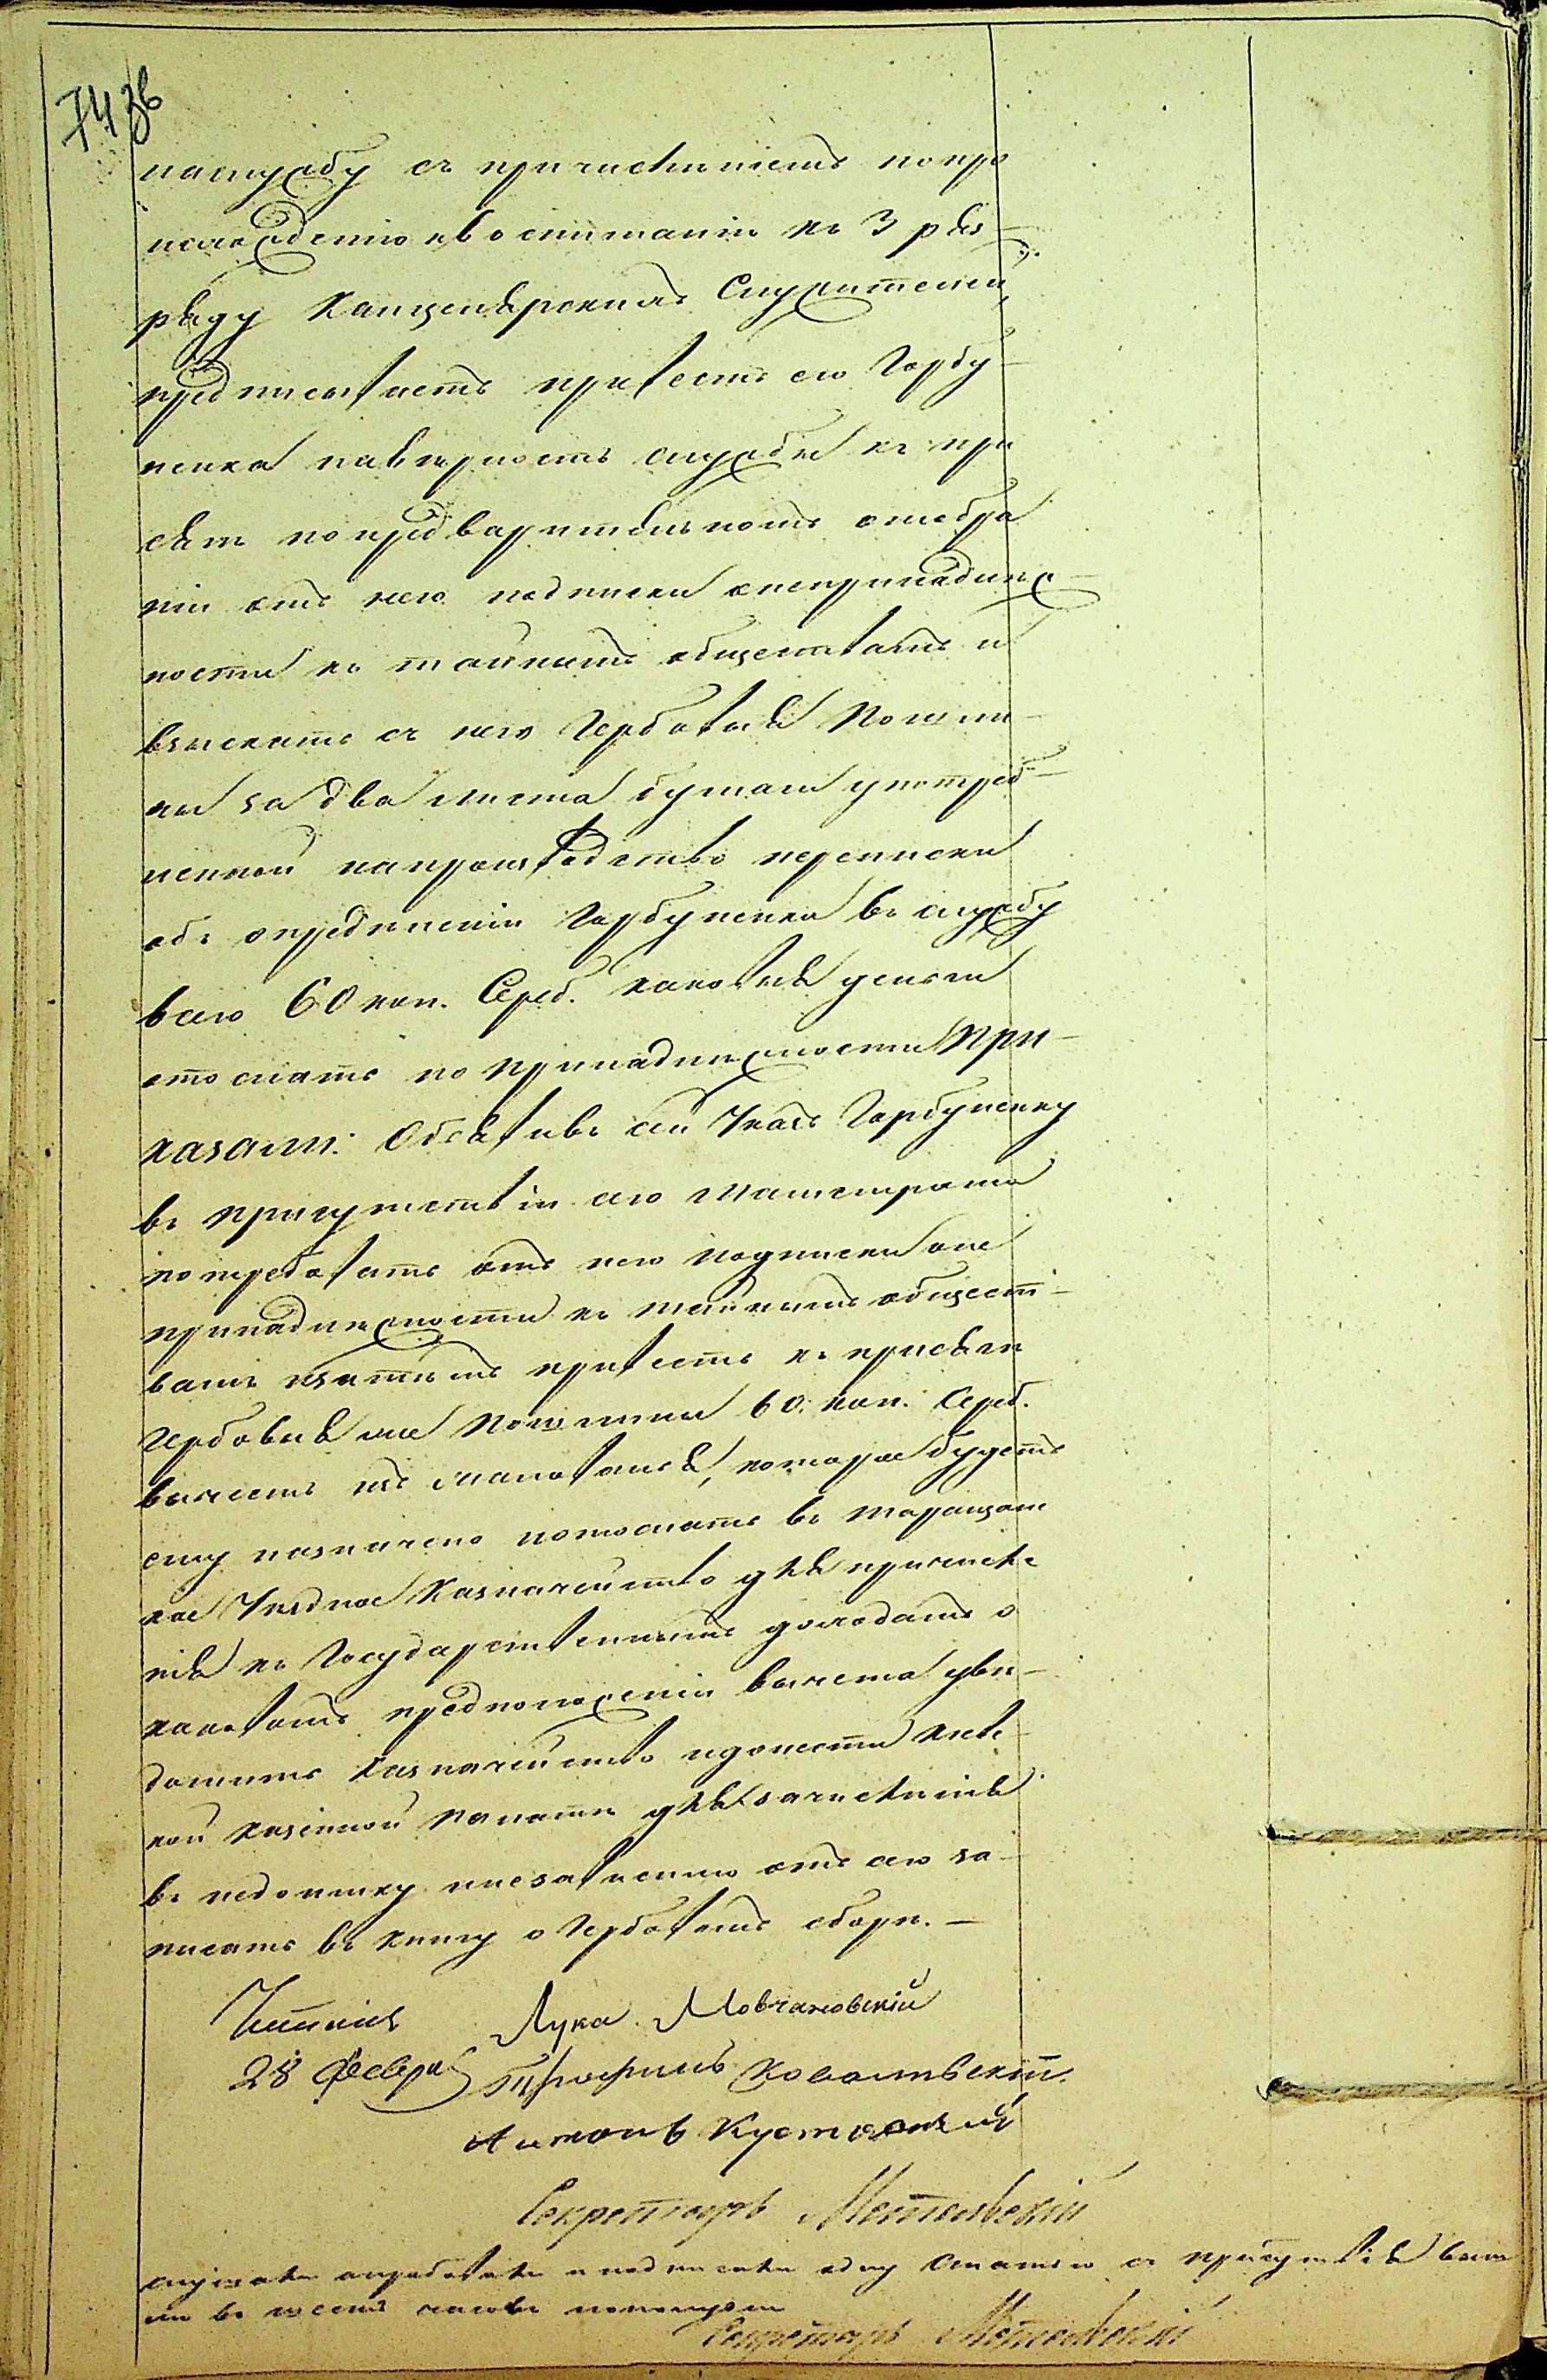 74 зв
наслужбу съ причисленіемъ попро
исхожденію и воспитанію къ 3 раз-
ряду Канцелярскихъ Служителей,
предписываетъ привесть его Горбу-
ненка навѣрность службы къ при
сягѣ попредварительномъ отобра
ніи отъ него подписки онепринадлеж-
ности къ тайнымъ обществамъ и
взыскать съ него Гербовыя Пошли-
ны за два листа бумаги употреб-
ленной напроизводство переписки
объ опредѣленіи Горбуненка въ службу
всего 60 коп. Сереб. каковыя деньги
отослать по принадлежности При-
казали: Объявивъ сей Указъ Горбуненку
въ присутствіи сего Магистрата
потребовать отъ него подписки оне
принадлежности къ тайнымъ общест-
вамъ привесть къ присягѣ
Гербовыя же Пошлины 60. коп. Сереб.
вычесть изъ жалованья, которое будетъ
ему назначено и отослать въ Таращан
кое Уѣздное Казначейство для причисле
нія къ Государственнымъ доходамъ о
каковомъ предположеніи вычета увѣ-
домить Казначейство идонести Кіев-
кой Казенной Палатѣ для зачисленія
въ недоимку инезависимо отъ сего за-
писать въ книгу о Гербовомъ сборѣ. –
Лука Мовчановскій
28 Февра Трофимъ Ковальвскій.
Антонъ
Секретарь Метельскій
слушали апробовали и подписали одну Статью съ присутствія вышли
въ часовъ пополудни
Секретарь Метельскій